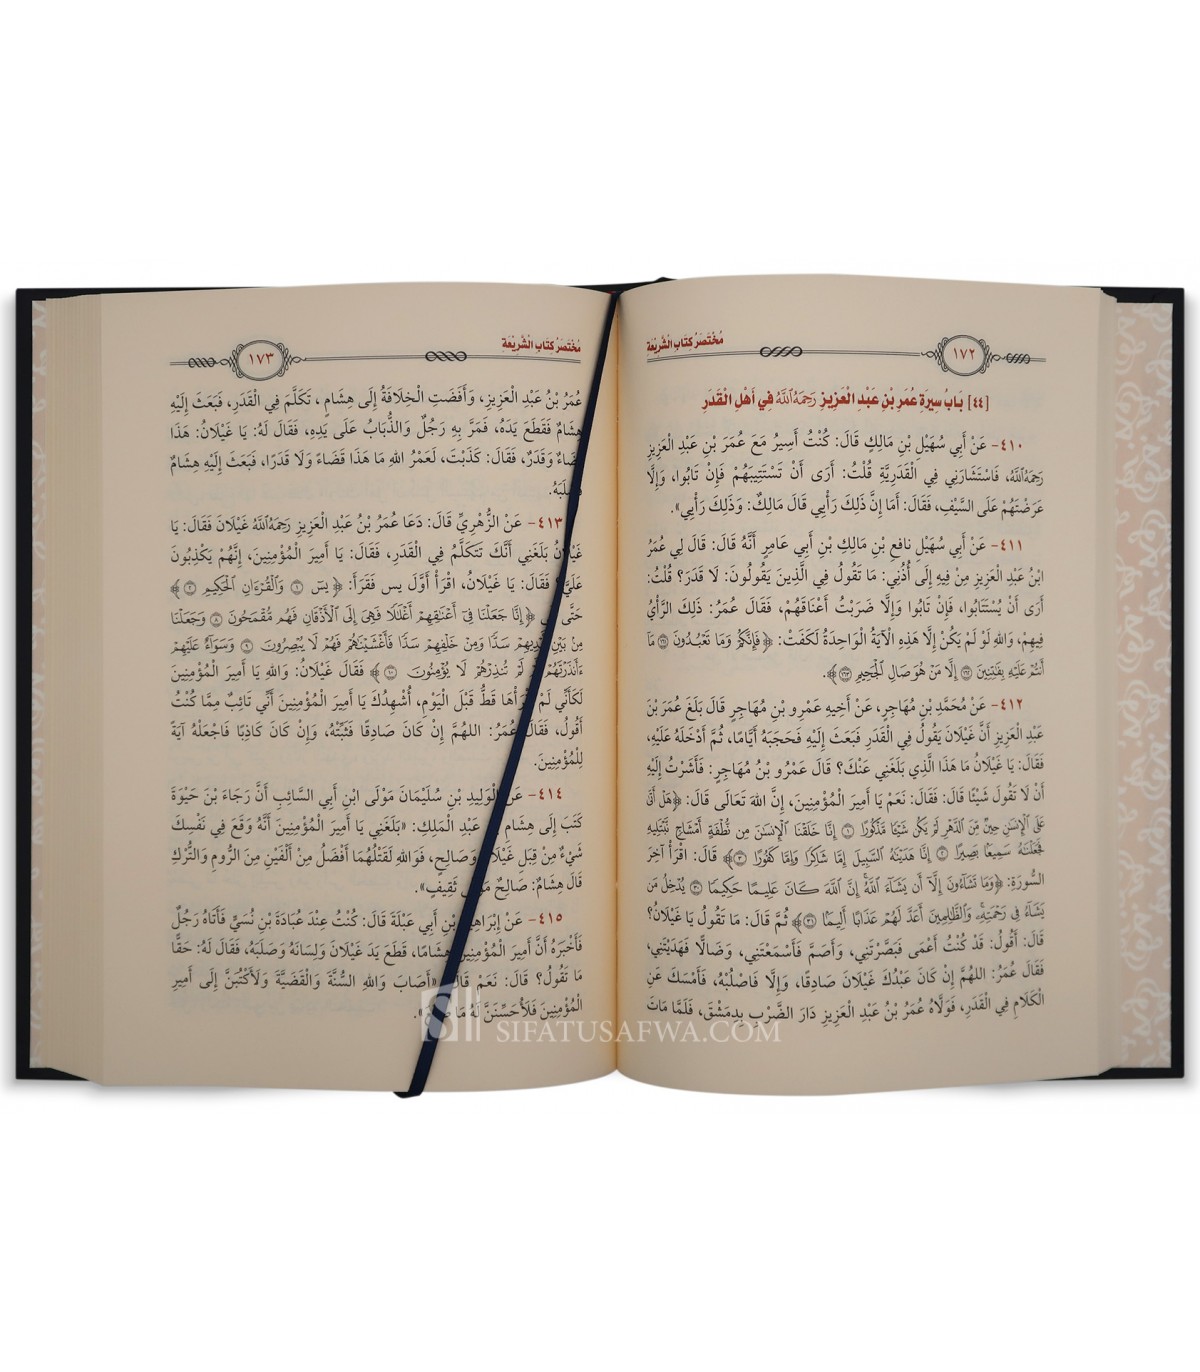 مُخْتَصَرُ كِتَابِ الشَّرِيْعَةِ
١٧٢
[٤٤] بَابُ سِيرَةِ عُمَرَ بْنِ عَبْدِ الْعَزِيزِ رَحِمَهُ اللَّهُ فِي أَهْلِ الْقَدَرِ
٤١٠- عَنْ أَبِي سُهَيْلِ بْنِ مَالِكٍ قَالَ: كُنْتُ أَسِيرُ مَعَ عُمَرَ بْنِ عَبْدِ الْعَزِيزِ
رَحِمَهُ اللَّهُ، فَاسْتَشَارَنِي فِي الْقَدَرِيَّةِ قُلْتُ: أَرَى أَنْ تَسْتَتِيبَهُمْ فَإِنْ تَابُوا، وَإِلَّا
عَرَضْتَهُمْ عَلَى السَّيْفِ، فَقَالَ: أَمَا إِنَّ ذَلِكَ رَأْيِي قَالَ مَالِكٌ: وَذَلِكَ رَأْيِي».
٤١١- عَنْ أَبِي سُهَيْلٍ نَافِعِ بْنِ مَالِكِ بْنِ أَبِي عَامِرٍ أَنَّهُ قَالَ: قَالَ لِي عُمَرُ
ابْنُ عَبْدِ الْعَزِيزِ مِنْ فِيهِ إِلَى أُذُنِي: مَا تَقُولُ فِي الَّذِينَ يَقُولُونَ: لَا قَدَرَ؟ قُلْتُ:
أَرَى أَنْ يُسْتَتَابُوا، فَإِنْ تَابُوا وَإِلَّا ضَرَبْتُ أَعْنَاقَهُمْ، فَقَالَ عُمَرُ: ذَلِكَ الرَّأْيُ
فِيهِمْ، وَاللهِ لَوْ لَمْ يَكُنْ إِلَّا هَذِهِ الْآيَةُ الْوَاحِدَةُ لَكَفَتْ: ﴿فَإِنَّكُمْ وَمَا تَعْبُدُونَ ١٦١ مَا
أَنتُمْ عَلَيْهِ بِفَٰتِنِينَ ١٦٢ إِلَّا مَنْ هُوَ صَالِ الْجَحِيمِ ١٦٣﴾.
٤١٢- عَنْ مُحَمَّدِ بْنِ مُهَاجِرٍ، عَنْ أَخِيهِ عَمْرِو بْنِ مُهَاجِرٍ قَالَ بَلَغَ عُمَرَ بْنَ
عَبْدِ الْعَزِيزِ أَنَّ غَيْلَانَ يَقُولُ فِي الْقَدَرِ فَبَعَثَ إِلَيْهِ فَحَجَبَهُ أَيَّامًا، ثُمَّ أَدْخَلَهُ عَلَيْهِ،
فَقَالَ: يَا غَيْلَانُ مَا هَذَا الَّذِي بَلَغَنِي عَنْكَ؟ قَالَ عَمْرُو بْنُ مُهَاجِرٍ: فَأَشَرْتُ إِلَيْهِ
أَنْ لَا تَقُولَ شَيْئًا قَالَ: فَقَالَ: نَعَمْ يَا أَمِيرَ الْمُؤْمِنِينَ، إِنَّ اللهَ تَعَالَى قَالَ: ﴿هَلْ أَتَىٰ
عَلَى الْإِنسَٰنِ حِينٌ مِّنَ الدَّهْرِ لَمْ يَكُن شَيْئًا مَّذْكُورًا ١ إِنَّا خَلَقْنَا الْإِنسَٰنَ مِن نُّطْفَةٍ أَمْشَاجٍ نَّبْتَلِيهِ
فَجَعَلْنَٰهُ سَمِيعًۢا بَصِيرًا ٢ إِنَّا هَدَيْنَٰهُ السَّبِيلَ إِمَّا شَاكِرًا وَإِمَّا كَفُورًا ٣﴾ قَالَ: اقْرَأْ آخِرَ
السُّورَةِ: ﴿وَمَا تَشَآءُونَ إِلَّآ أَن يَشَآءَ اللَّهُ إِنَّ اللَّهَ كَانَ عَلِيمًا حَكِيمًا ٣٠ يُدْخِلُ مَن
يَشَآءُ فِى رَحْمَتِهِۦ وَالظَّٰلِمِينَ أَعَدَّ لَهُمْ عَذَابًا أَلِيمًۢا ٣١﴾ ثُمَّ قَالَ: مَا تَقُولُ يَا غَيْلَانُ؟
قَالَ: أَقُولُ: قَدْ كُنْتُ أَعْمَى فَبَصَّرْتَنِي، وَأَصَمَّ فَأَسْمَعْتَنِي، وَضَالًّا فَهَدَيْتَنِي،
فَقَالَ عُمَرُ: اللهُمَّ إِنْ كَانَ عَبْدُكَ غَيْلَانُ صَادِقًا، وَإِلَّا فَاصْلُبْهُ، فَأَمْسَكَ عَنِ
الْكَلَامِ فِي الْقَدَرِ، فَوَلَّاهُ عُمَرُ بْنُ عَبْدِ الْعَزِيزِ دَارَ الضَّرْبِ بِدِمَشْقَ، فَلَمَّا مَاتَ
مُخْتَصَرُ كِتَابِ الشَّرِيْعَةِ
١٧٣
عُمَرُ بْنُ عَبْدِ الْعَزِيزِ، وَأَفَضَتِ الْخِلَافَةُ إِلَى هِشَامٍ، تَكَلَّمَ فِي الْقَدَرِ، فَبَعَثَ إِلَيْهِ
هِشَامٌ فَقَطَعَ يَدَهُ، فَمَرَّ بِهِ رَجُلٌ وَالذُّبَابُ عَلَى يَدِهِ، فَقَالَ لَهُ: يَا غَيْلَانُ: هَذَا
قَضَاءٌ وَقَدَرٌ، فَقَالَ: كَذَبْتَ، لَعَمْرُ اللهِ مَا هَذَا قَضَاءً وَلَا قَدَرًا، فَبَعَثَ إِلَيْهِ هِشَامٌ
فَصَلَبَهُ.
٤١٣- عَنْ الزُّهْرِيِّ قَالَ: دَعَا عُمَرُ بْنُ عَبْدِ الْعَزِيزِ رَحِمَهُ اللَّهُ غَيْلَانَ فَقَالَ: يَا
غَيْلَانُ بَلَغَنِي أَنَّكَ تَتَكَلَّمُ فِي الْقَدَرِ، فَقَالَ: يَا أَمِيرَ الْمُؤْمِنِينَ، إِنَّهُمْ يَكْذِبُونَ
عَلَيَّ؟ فَقَالَ: يَا غَيْلَانُ، اقْرَأْ أَوَّلَ يس فَقَرَأَ: ﴿يسٓ ١ وَالْقُرْءَانِ الْحَكِيمِ ٢﴾
حَتَّى ﴿إِنَّا جَعَلْنَا فِىٓ أَعْنَٰقِهِمْ أَغْلَٰلًا فَهِىَ إِلَى الْأَذْقَانِ فَهُم مُّقْمَحُونَ ٨ وَجَعَلْنَا
مِنۢ بَيْنِ أَيْدِيهِمْ سَدًّا وَمِنْ خَلْفِهِمْ سَدًّا فَأَغْشَيْنَٰهُمْ فَهُمْ لَا يُبْصِرُونَ ٩ وَسَوَآءٌ عَلَيْهِمْ
ءَأَنذَرْتَهُمْ أَمْ لَمْ تُنذِرْهُمْ لَا يُؤْمِنُونَ ١٠﴾ فَقَالَ غَيْلَانُ: وَاللهِ يَا أَمِيرَ الْمُؤْمِنِينَ
لَكَأَنِّي لَمْ أَقْرَأْهَا قَطُّ قَبْلَ الْيَوْمِ، أُشْهِدُكَ يَا أَمِيرَ الْمُؤْمِنِينَ أَنِّي تَائِبٌ مِمَّا كُنْتُ
أَقُولُ، فَقَالَ عُمَرُ: اللهُمَّ إِنْ كَانَ صَادِقًا فَثَبِّتْهُ، وَإِنْ كَانَ كَاذِبًا فَاجْعَلْهُ آيَةً
لِلْمُؤْمِنِينَ.
٤١٤- عَنْ الْوَلِيدِ بْنِ سُلَيْمَانَ مَوْلَى ابْنِ أَبِي السَّائِبِ أَنَّ رَجَاءَ بْنَ حَيْوَةَ
كَتَبَ إِلَى هِشَامِ بْنِ عَبْدِ الْمَلِكِ: «بَلَغَنِي يَا أَمِيرَ الْمُؤْمِنِينَ أَنَّهُ وَقَعَ فِي نَفْسِكَ
شَيْءٌ مِنْ قِبَلِ غَيْلَانَ وَصَالِحٍ، فَوَاللهِ لَقَتْلُهُمَا أَفْضَلُ مِنْ أَلْفَيْنِ مِنَ الرُّومِ وَالتُّرْكِ
قَالَ هِشَامٌ: صَالِحٌ مَوْلَى ثَقِيفٍ».
٤١٥- عَنْ إِبْرَاهِيمَ بْنِ أَبِي عَبْلَةَ قَالَ: كُنْتُ عِنْدَ عُبَادَةَ بْنِ نُسَيٍّ فَأَتَاهُ رَجُلٌ
فَأَخْبَرَهُ أَنَّ أَمِيرَ الْمُؤْمِنِينَ هِشَامًا، قَطَعَ يَدَ غَيْلَانَ وَلِسَانَهُ وَصَلَبَهُ، فَقَالَ لَهُ: حَقًّا
مَا تَقُولُ؟ قَالَ: نَعَمْ قَالَ: «أَصَابَ وَاللهِ السُّنَّةَ وَالْقَضِيَّةَ وَلَأَكْتُبَنَّ إِلَى أَمِيرِ
الْمُؤْمِنِينَ فَلَأُحَسِّنَنَّ لَهُ مَا صَنَعَ».
SIFATUSAFWA.COM